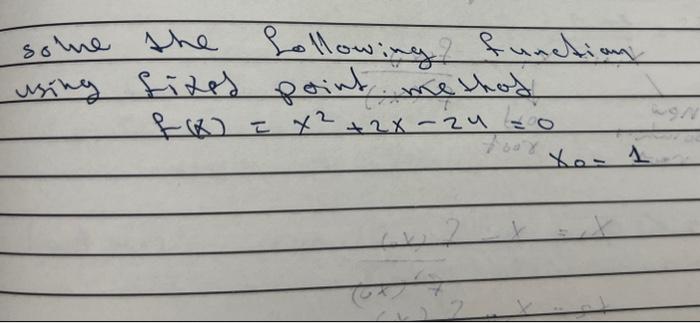 solve the following function
using fixed point method
f(x) = x² + 2x - 24 = 0
x₀ = 1